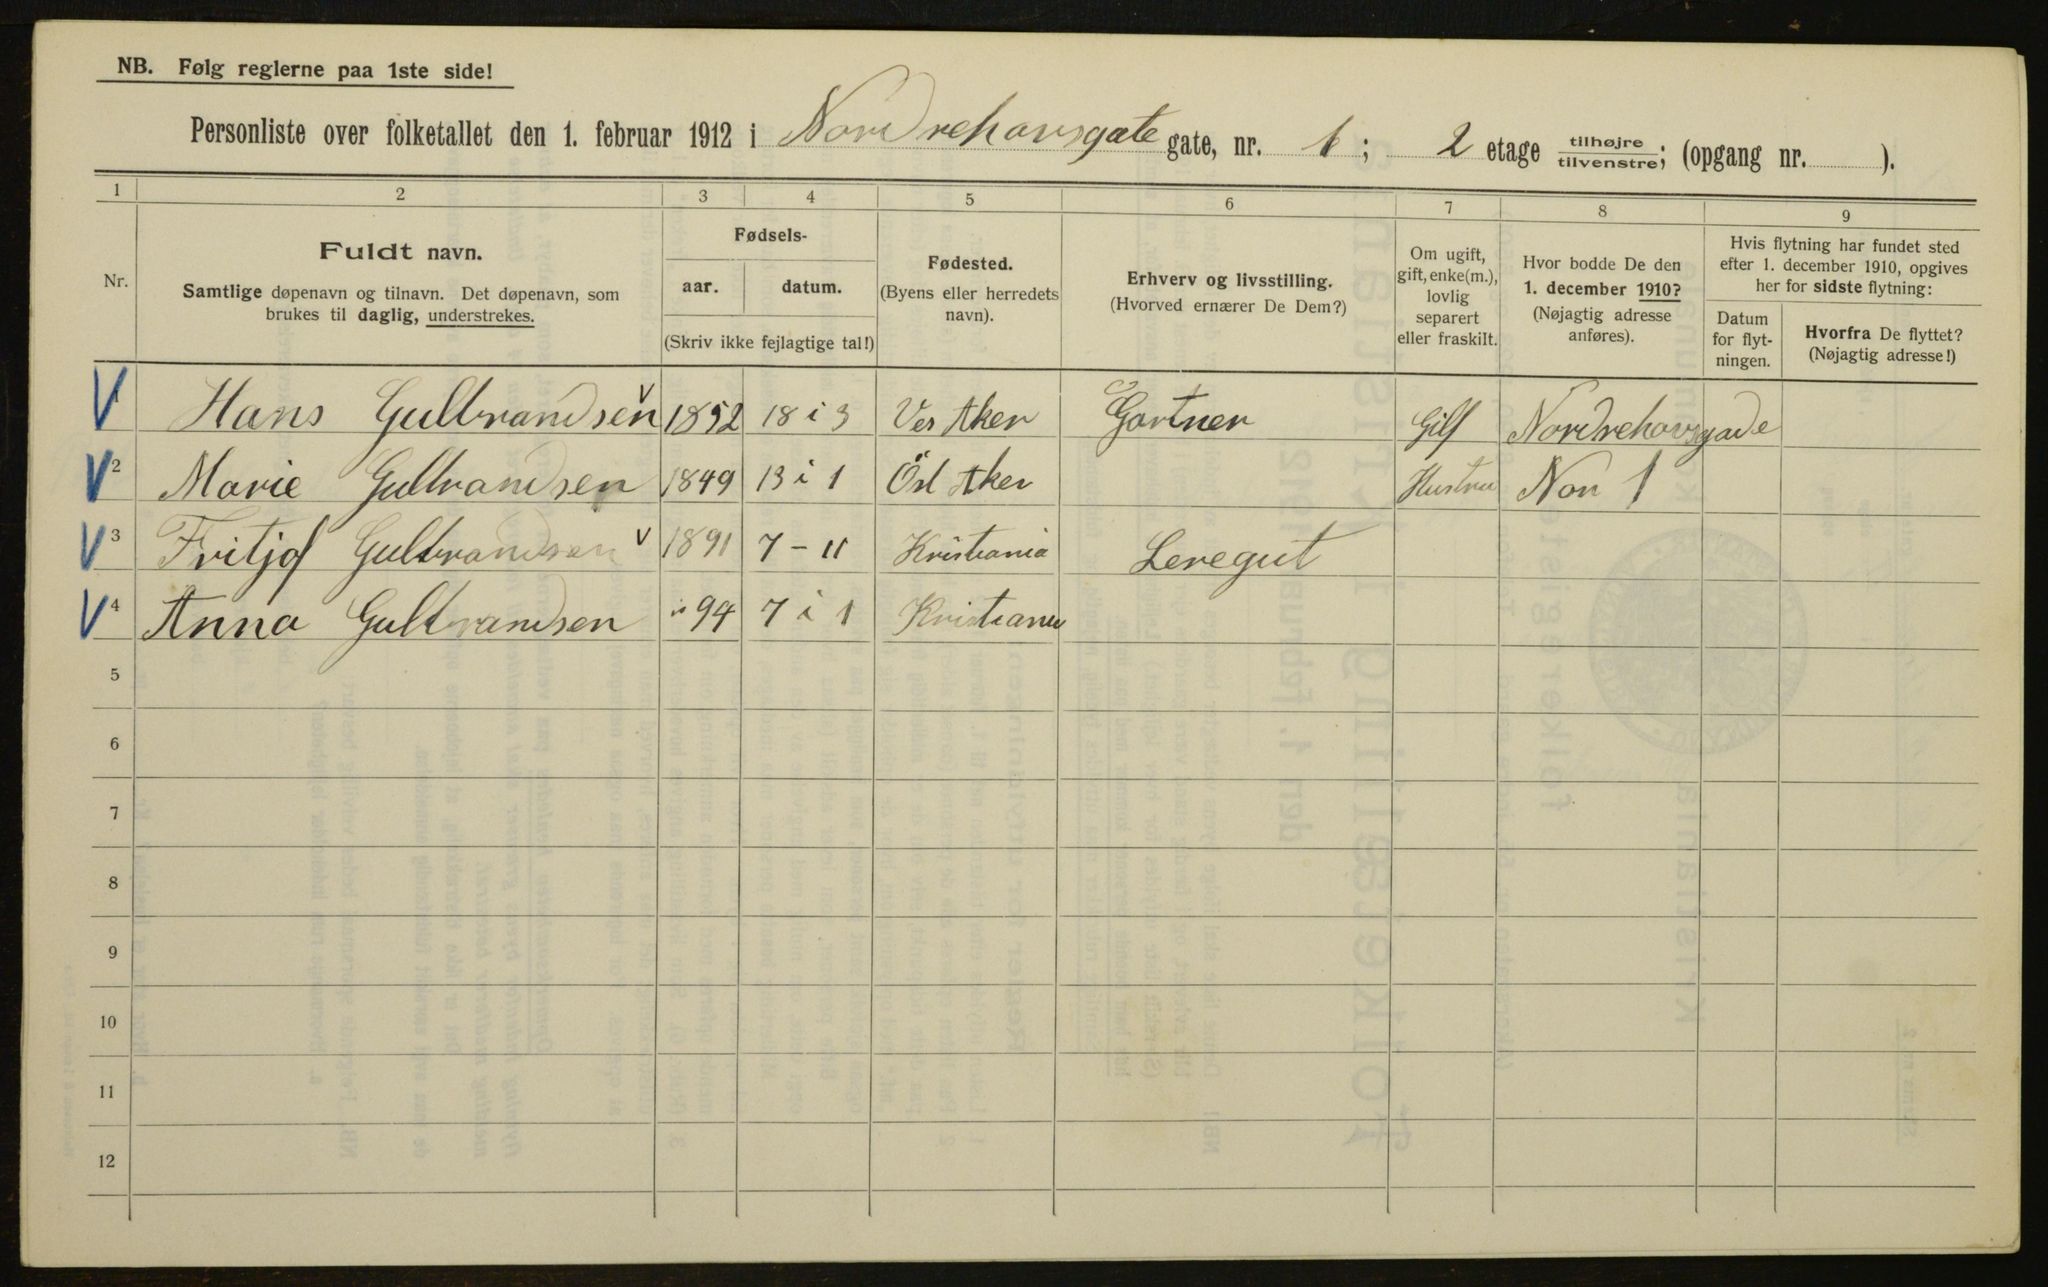 NB. Følg reglerne paa 1ste side!
Personliste over folketallet den 1. februar 1912 i Nordrehovsgate gate, nr. 1; 2 etage tilhøjre/tilvenstre; (opgang nr. ).
1 2 3 4 5 6 7 8 9
Nr.
Fuldt navn.
Samtlige døpenavn og tilnavn. Det døpenavn, som
brukes til daglig, understrekes.
Fødsels-
aar. datum.
(Skriv ikke fejlagtige tal!)
Fødested.
(Byens eller herredets
navn).
Erhverv og livsstilling.
(Hvorved ernærer De Dem?)
Om ugift,
gift, enke(m.),
lovlig
separert
eller fraskilt.
Hvor bodde De den
1. december 1910?
(Nøjagtig adresse
anføres).
Hvis flytning har fundet sted
efter 1. december 1910, opgives
her for sidste flytning:
Datum
for flyt-
ningen.
Hvorfra De flyttet?
(Nøjagtig adresse!)
V Hans Gulbrandsen V 1852 18 i 3 Ves Aker Gartner Gift Nordrehovsgade
V 2 Marie Gulbrandsen 1849 13 i 1 Öst Aker Hustru Non 1
V 3 Fritjof Gulbrandsen V 1891 7 - 11 Kristiania Leregut
V 4 Anna Gulbrandsen 94 7 i 1 Kristiania
5
6
7
8
9
10
11
12